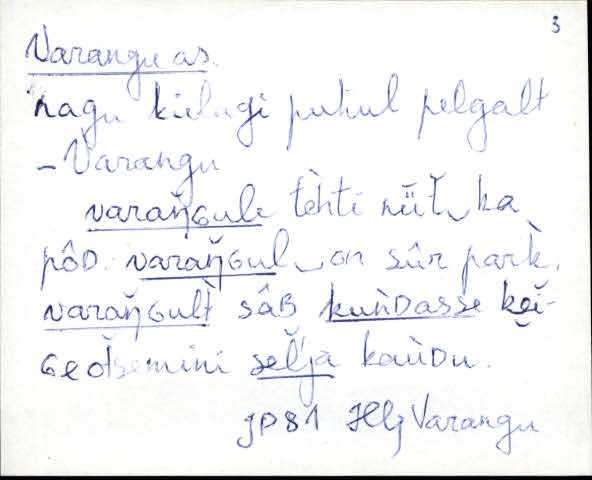 3
Varangu as.
nagu kielagi puhul pelgalt
– Varangu
varaŋ̆ɢule tèhti nüt̆ ka
pôᴅ. varaŋ̆ɢul on sûr par̀k,
varaŋ̆ɢult̀ sâʙ kuǹᴅasse
selja kaùᴅu.
JP81 HljVarangu